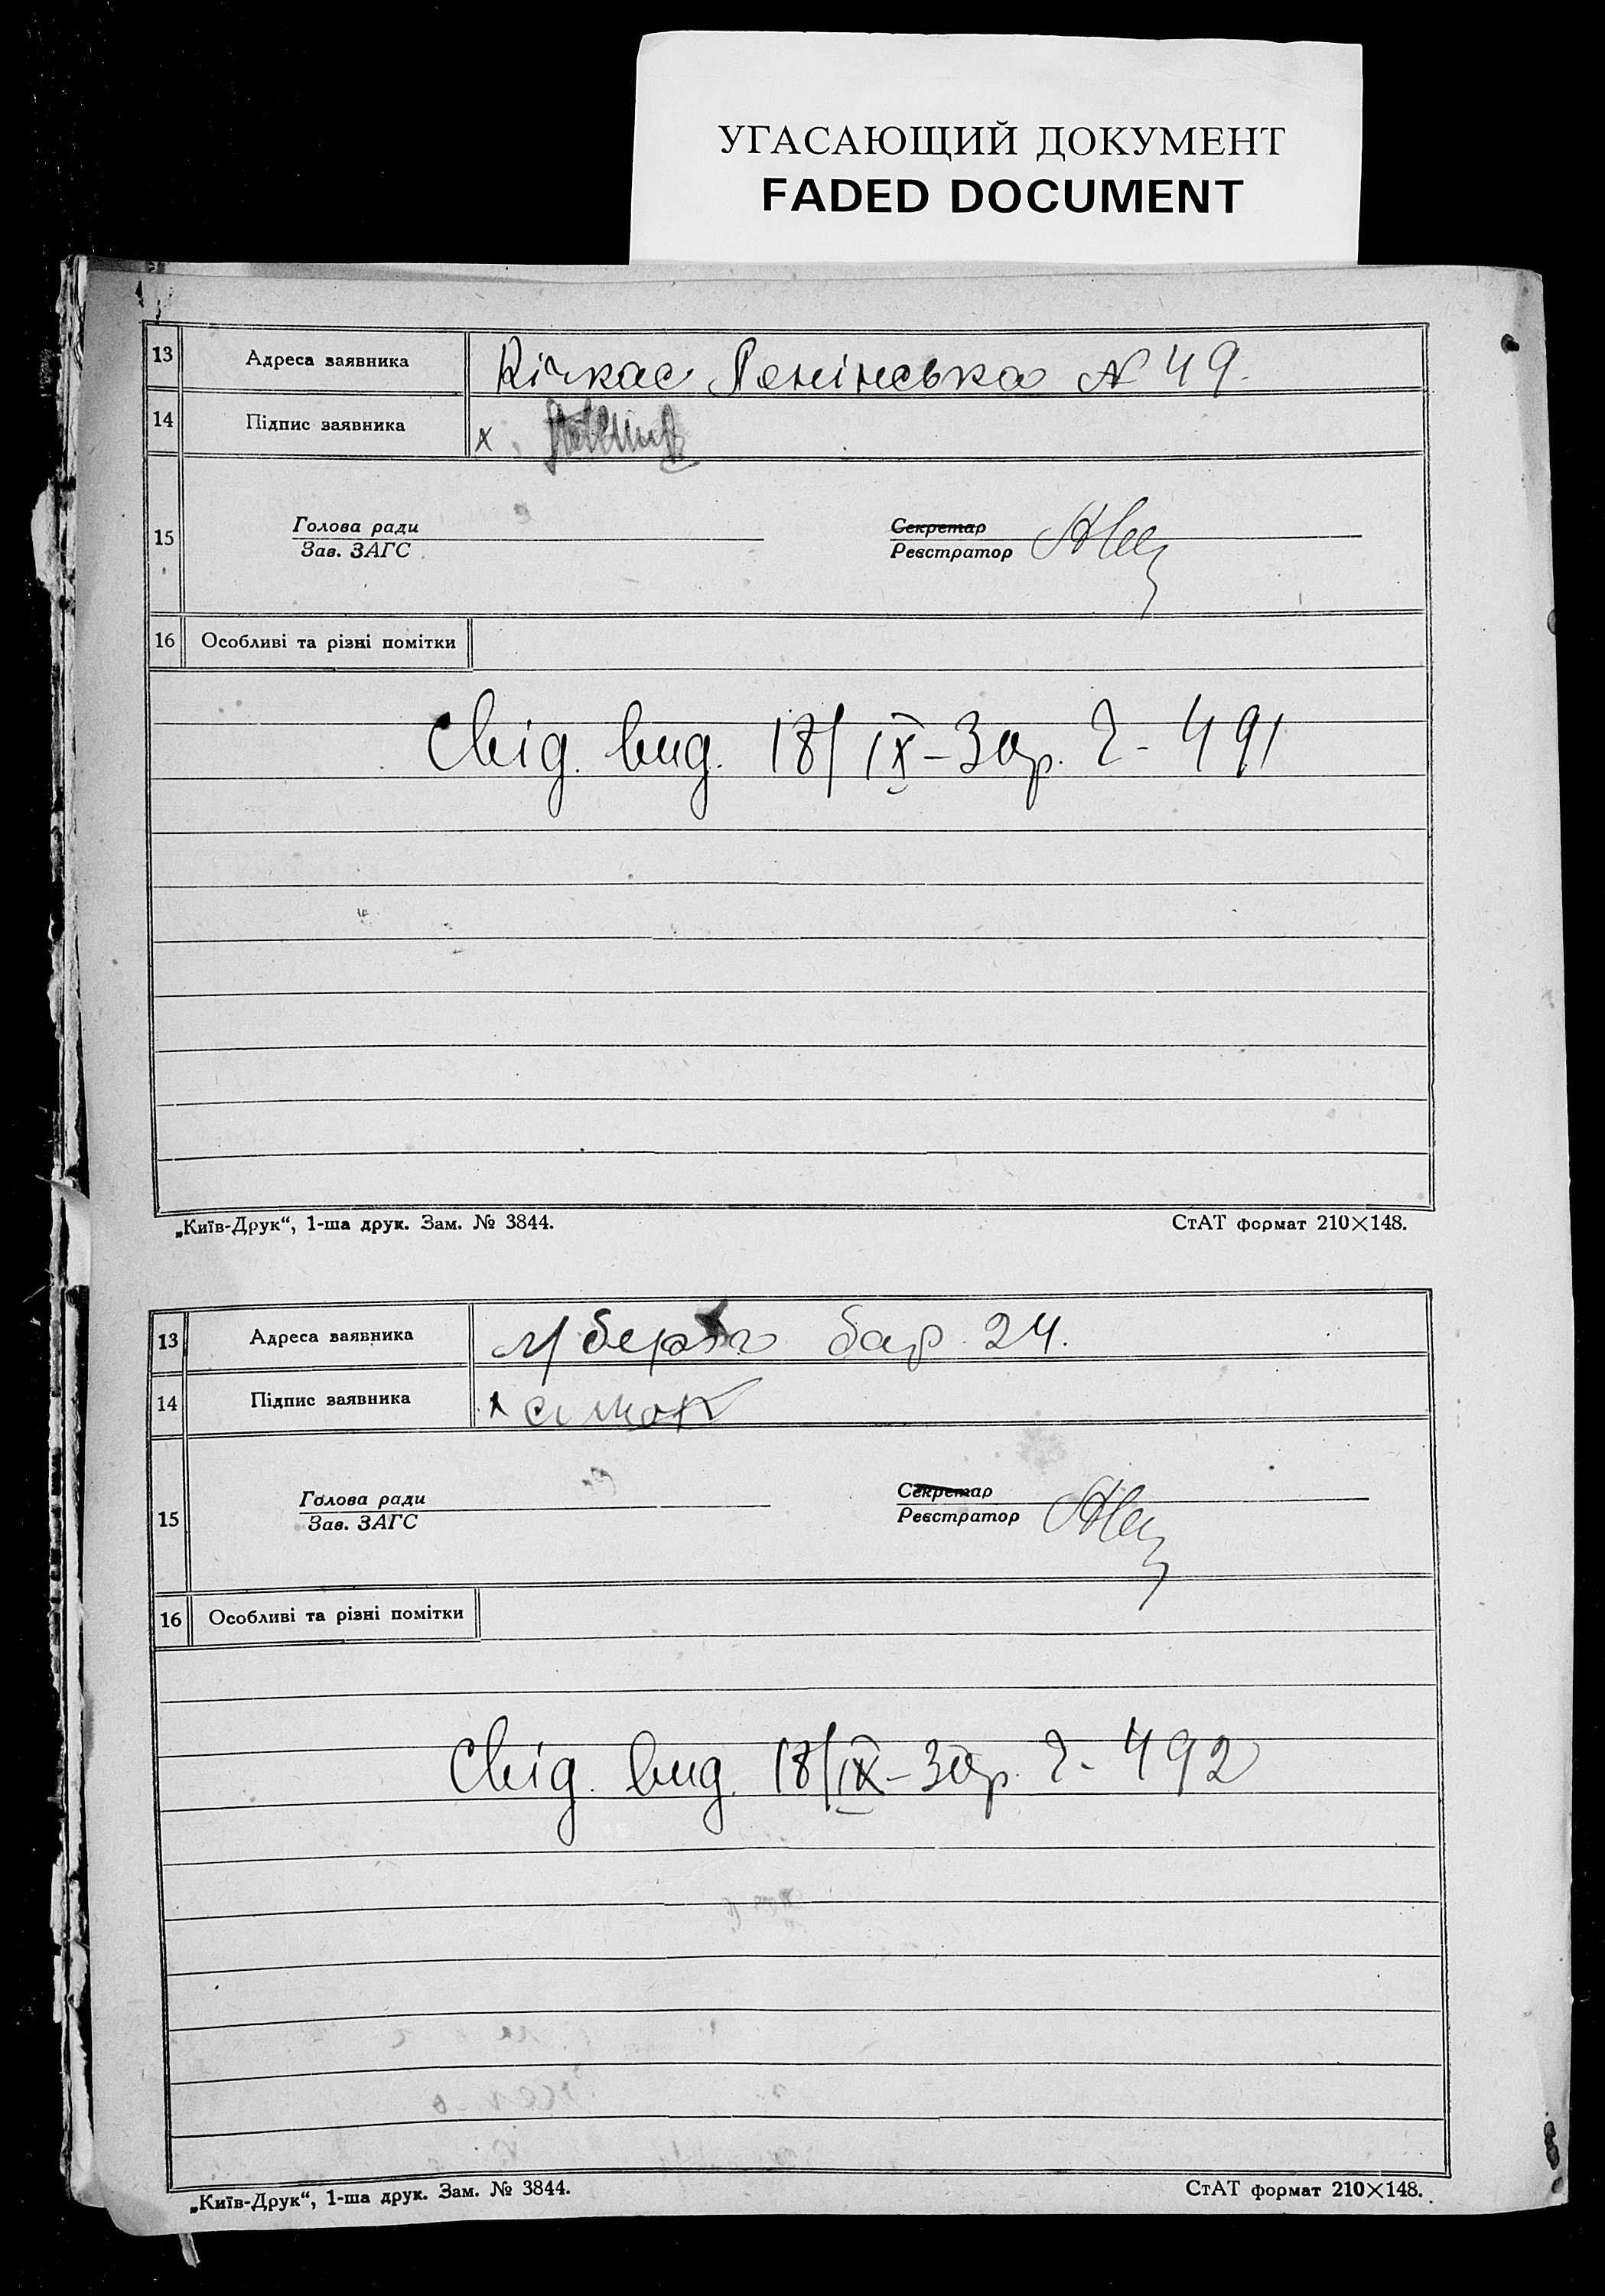 УГАСАЮЩИЙ ДОКУМЕНТ
FADED DOCUMENT
13 Адреса заявника Кічкас Ленінська № 49.
14 Підпис заявника х
15 Голова ради Секретар
Зав. ЗАГС Реєстратор
16 Особливі та різні помітки
Свід. вид. 18/IX-30р. Ч- 491
„Київ-Друк“, 1-ша друк. Зам. № 3844. СтАТ формат 210×148.
13 Адреса заявника бар 24.
14 Підпис заявника х
15 Голова ради Секретар
Зав. ЗАГС Реєстратор
16 Особливі та різні помітки
Свід. вид. 18/IX-30р. Ч- 492
„Київ-Друк“, 1-ша друк. Зам. № 3844. СтАТ формат 210×148.